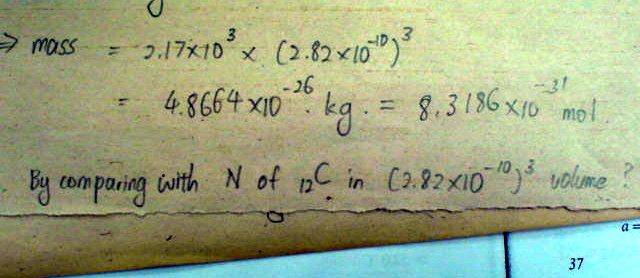 ⇒ mass = 2.17×10³ × (2.82×10⁻¹⁰)³
= 4.8664×10⁻²⁶ kg. = 8.3186×10⁻³¹ mol.
By comparing with N of ₁₂C in (2.82×10⁻¹⁰)³ volume?
a=
37